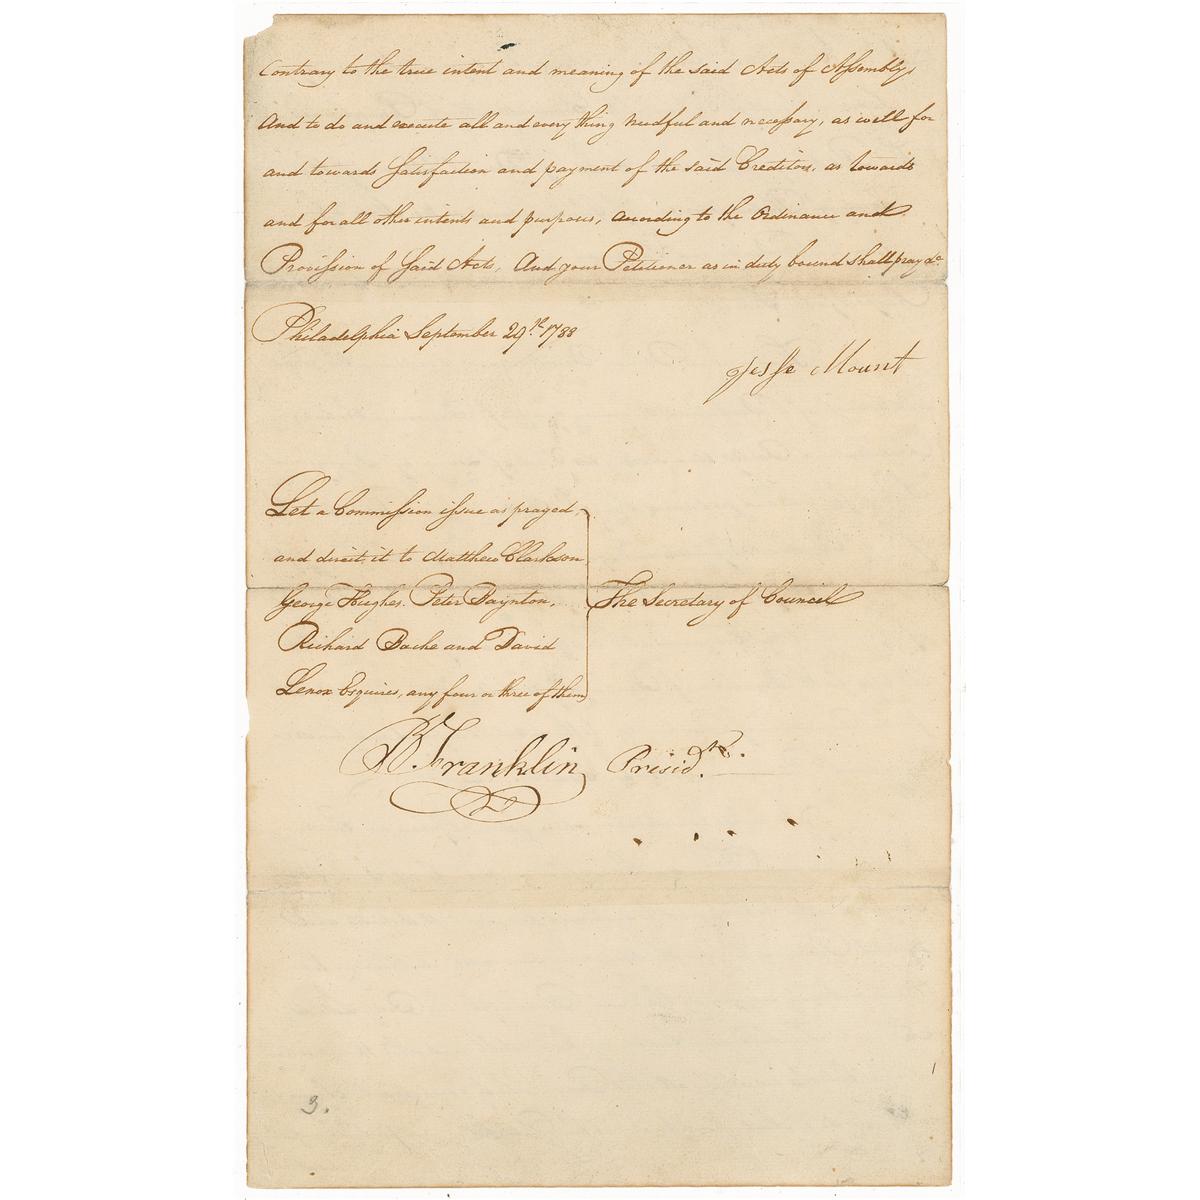 Contrary to the true intent and meaning of the said Acts of Assembly,
And to do and execute all and every thing needful and necessary, as well for
and towards Satisfaction and payment of the said Creditors, as towards
and for all other intents and purposes, according to the Ordinance and
Provission of Said Acts, And your Petitioner as in duty bound shall pray &c
Philadelphia September 29th. 1788
Jesse Mount
Let a Commission issue as prayed,
and direct it to Matthew Clarkson
George Hughes, Peter Baynton,
Richard Bache and David
Lenox Esquires, any four or three of them
The Secretary of Council
B. Franklin Presidt.
3.